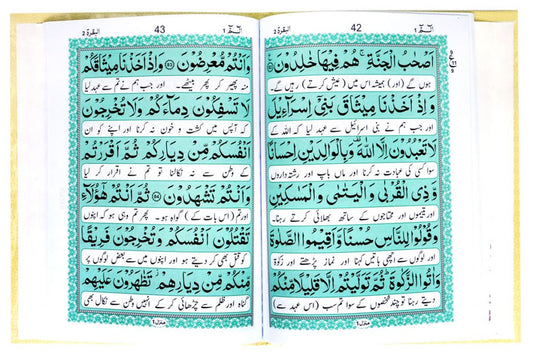 البقرة ٢ 42 الٓمّٓ ١
اَصْحٰبُ الْجَنَّةِ ۚ هُمْ فِيْهَا خٰلِدُوْنَ
ہوں گے (اور) ہمیشہ اس میں (عیش کرتے) رہیں گے۔
وَاِذْ اَخَذْنَا مِيْثَاقَ بَنِيْٓ اِسْرَآءِيْلَ
اور جب ہم نے بنی اسرائیل سے عہد لیا کہ اللہ کے
لَا تَعْبُدُوْنَ اِلَّا اللّٰهَ وَبِالْوَالِدَيْنِ اِحْسَانًا
سوا کسی کی عبادت نہ کرنا اور ماں باپ اور رشتہ داروں
وَّذِي الْقُرْبٰى وَالْيَتٰمٰى وَالْمَسٰكِيْنِ
اور یتیموں اور محتاجوں کے ساتھ بھلائی کرتے رہنا۔
وَقُوْلُوْا لِلنَّاسِ حُسْنًا وَّاَقِيْمُوا الصَّلٰوةَ
اور لوگوں سے اچھی باتیں کہنا اور نماز پڑھتے اور زکوٰة
وَاٰتُوا الزَّكٰوةَ ۭ ثُمَّ تَوَلَّيْتُمْ اِلَّا قَلِيْلًا مِّنْكُمْ
دیتے رہنا تو چند شخصوں کے سوا تم سب (اس عہد سے)
منزل ١
البقرة ٢ 43 الٓمّٓ ١
وَاَنْتُمْ مُّعْرِضُوْنَ ۝ وَاِذْ اَخَذْنَا مِيْثَاقَكُمْ
منہ پھیر کر پھر بیٹھے۔ اور جب ہم نے تم سے عہد لیا
لَا تَسْفِكُوْنَ دِمَآءَكُمْ وَلَا تُخْرِجُوْنَ
کہ آپس میں کشت و خون نہ کرنا اور اپنے کو ان
اَنْفُسَكُمْ مِّنْ دِيَارِكُمْ ثُمَّ اَقْرَرْتُمْ
کے وطن سے نہ نکالنا تو تم نے اقرار کر لیا
وَاَنْتُمْ تَشْهَدُوْنَ ۝ ثُمَّ اَنْتُمْ هٰٓؤُلَآءِ
اور تم (اس بات کے) گواہ ہو۔ پھر تم وہی ہو کہ اپنوں
تَقْتُلُوْنَ اَنْفُسَكُمْ وَتُخْرِجُوْنَ فَرِيْقًا
کو قتل بھی کر دیتے ہو اور اپنوں میں سے بعض لوگوں پر
مِّنْكُمْ مِّنْ دِيَارِهِمْ ۡ تَظٰهَرُوْنَ عَلَيْهِمْ
گناہ اور ظلم سے چڑھائی کر کے انہیں وطن سے نکال بھی
منزل ١